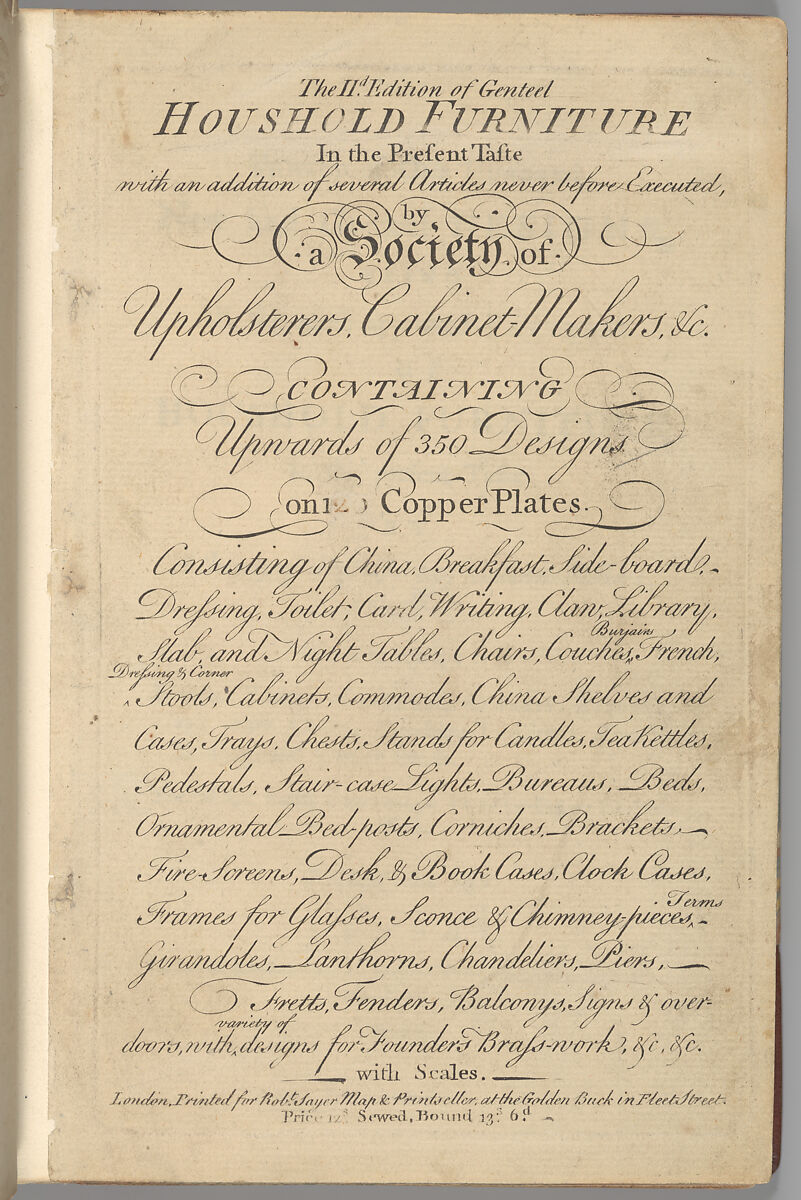 The II.d Edition of Genteel
HOUSHOLD FURNITURE
In the Preſent Taſte
with an addition of several Articles never before Executed,
by
a Society of
Upholsterers, Cabinet-Makers, &c.
CONTAINING
Upwards of 350 Designs
on Copper Plates.
Consisting of China, Breakfast, Side-board,
Dreſsing, Toilet, Card, Writing, Claw, Library,
Burjairs
Slab, and Night Tables, Chairs, Couches, French,
Dreſsing & Corner
Stools, Cabinets, Commodes, China Shelves and
Cases, Trays, Chests, Stands for Candles, Tea Kettles,
Pedestals, Stair-case Lights, Bureaus, Beds,
Ornamental Bed-posts, Corniches, Brackets,
Fire-Screens, Desk, & Book Cases, Clock Cases,
Terms
Frames for Glaſses, Sconce & Chimney-pieces,
Girandoles, Lanthorns, Chandeliers, Piers,
Fretts, Fenders, Balconys, Signs & over-
variety of
doors, with designs for Founders Braſs-work, &c, &c.
with Scales.
London, Printed for Rob.t Sayer Map & Printseller, at the Golden Buck in Fleet Street.
Price 12.s Sewed, Bound 13.s 6.d